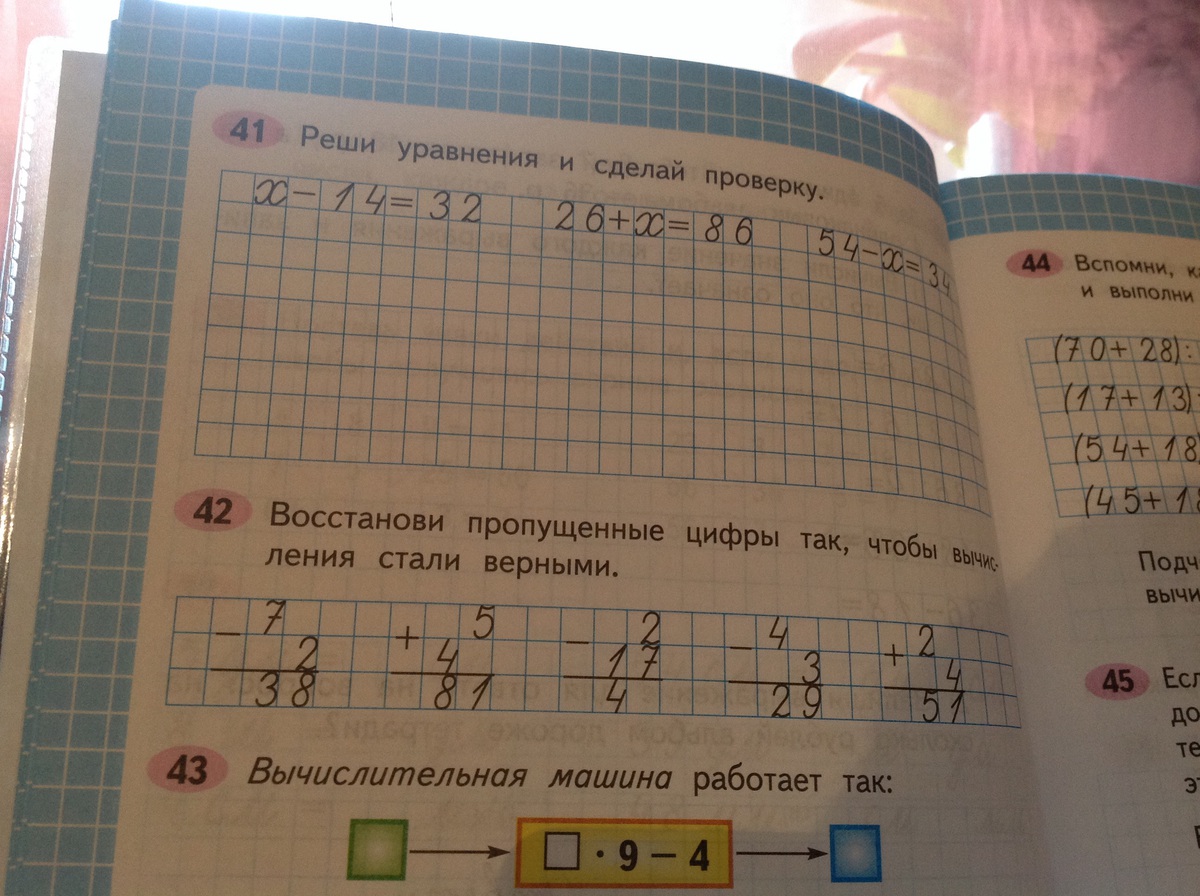 41 Реши уравнения и сделай проверку.
x − 14 = 32 26 + x = 86 54 − x = 34
42 Восстанови пропущенные цифры так, чтобы вычис-
ления стали верными.
− 7 + 5 − 2 − 4 + 2
2 4 17 3 4
38 81 4 29 51
43 Вычислительная машина работает так:
□ · 9 − 4
44 Вспомни,
и выполни
(70 + 28) :
(17 + 13)
(54 + 18)
(45 + 18
45